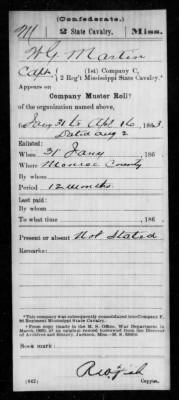 (Confederate.)
M | 2 State Cavalry. | Miss.
W G Martin
Capt, (1st) Company C,
2 Reg't Mississippi State Cavalry.*
Appears on
Company Muster Roll†
of the organization named above,
for Jany 31 to Apl 16, 1863.
Dated Aug 2
Enlisted:
When 31 Jany, 186
Where Monroe County
Period 12 months
Last paid:
By whom
To what time , 186
Present or absent Not Stated
Remarks:
*This company was subsequently consolidated into Company F,
Regiment Mississippi State Cavalry.
†From copy (made in the M. S. Office, War Department in
of an original record borrowed from the Director
of Archives and History, Jackson, Miss.
Book mark:
(642) Copyist.